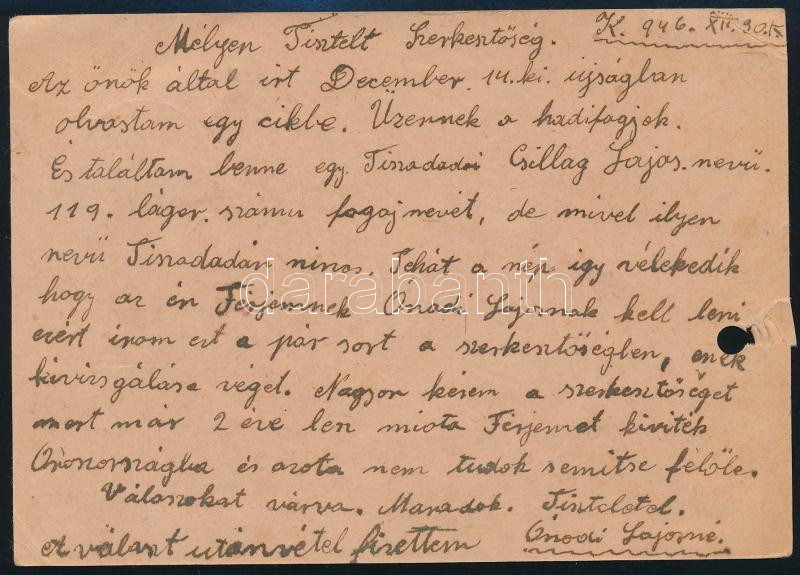 K. 946. XII. 30.
Mélyen Tisztelt Szerkesztőség.
Az önök által irt December. 14.ki. ujságban
olvastam egy cikbe. Üzennek a hadifogjok.
És találtam benne egy. Tiszadadai Csillag Lajos. nevü.
119. láger. számu fogoj nevét, de mivel ilyen
nevü Tiszadadán nincs. Tehát a nép igy vélekedik
hogy az én Férjemnek Ónodi Lajosnak kell leni
ezért irom ezt a pár sort a szerkesztőségben, enek
kivizsgálása véget. Nagyon kérem a szerkesztőséget
mert már 2 éve len miota Férjemet kiviték
Oroszországba és azota nem tudok semitse félőle.
Válaszokat várva. Maradok. Tisztelettel.
A választ utánvétel fizettem Ónodi Lajosné.
darabanth